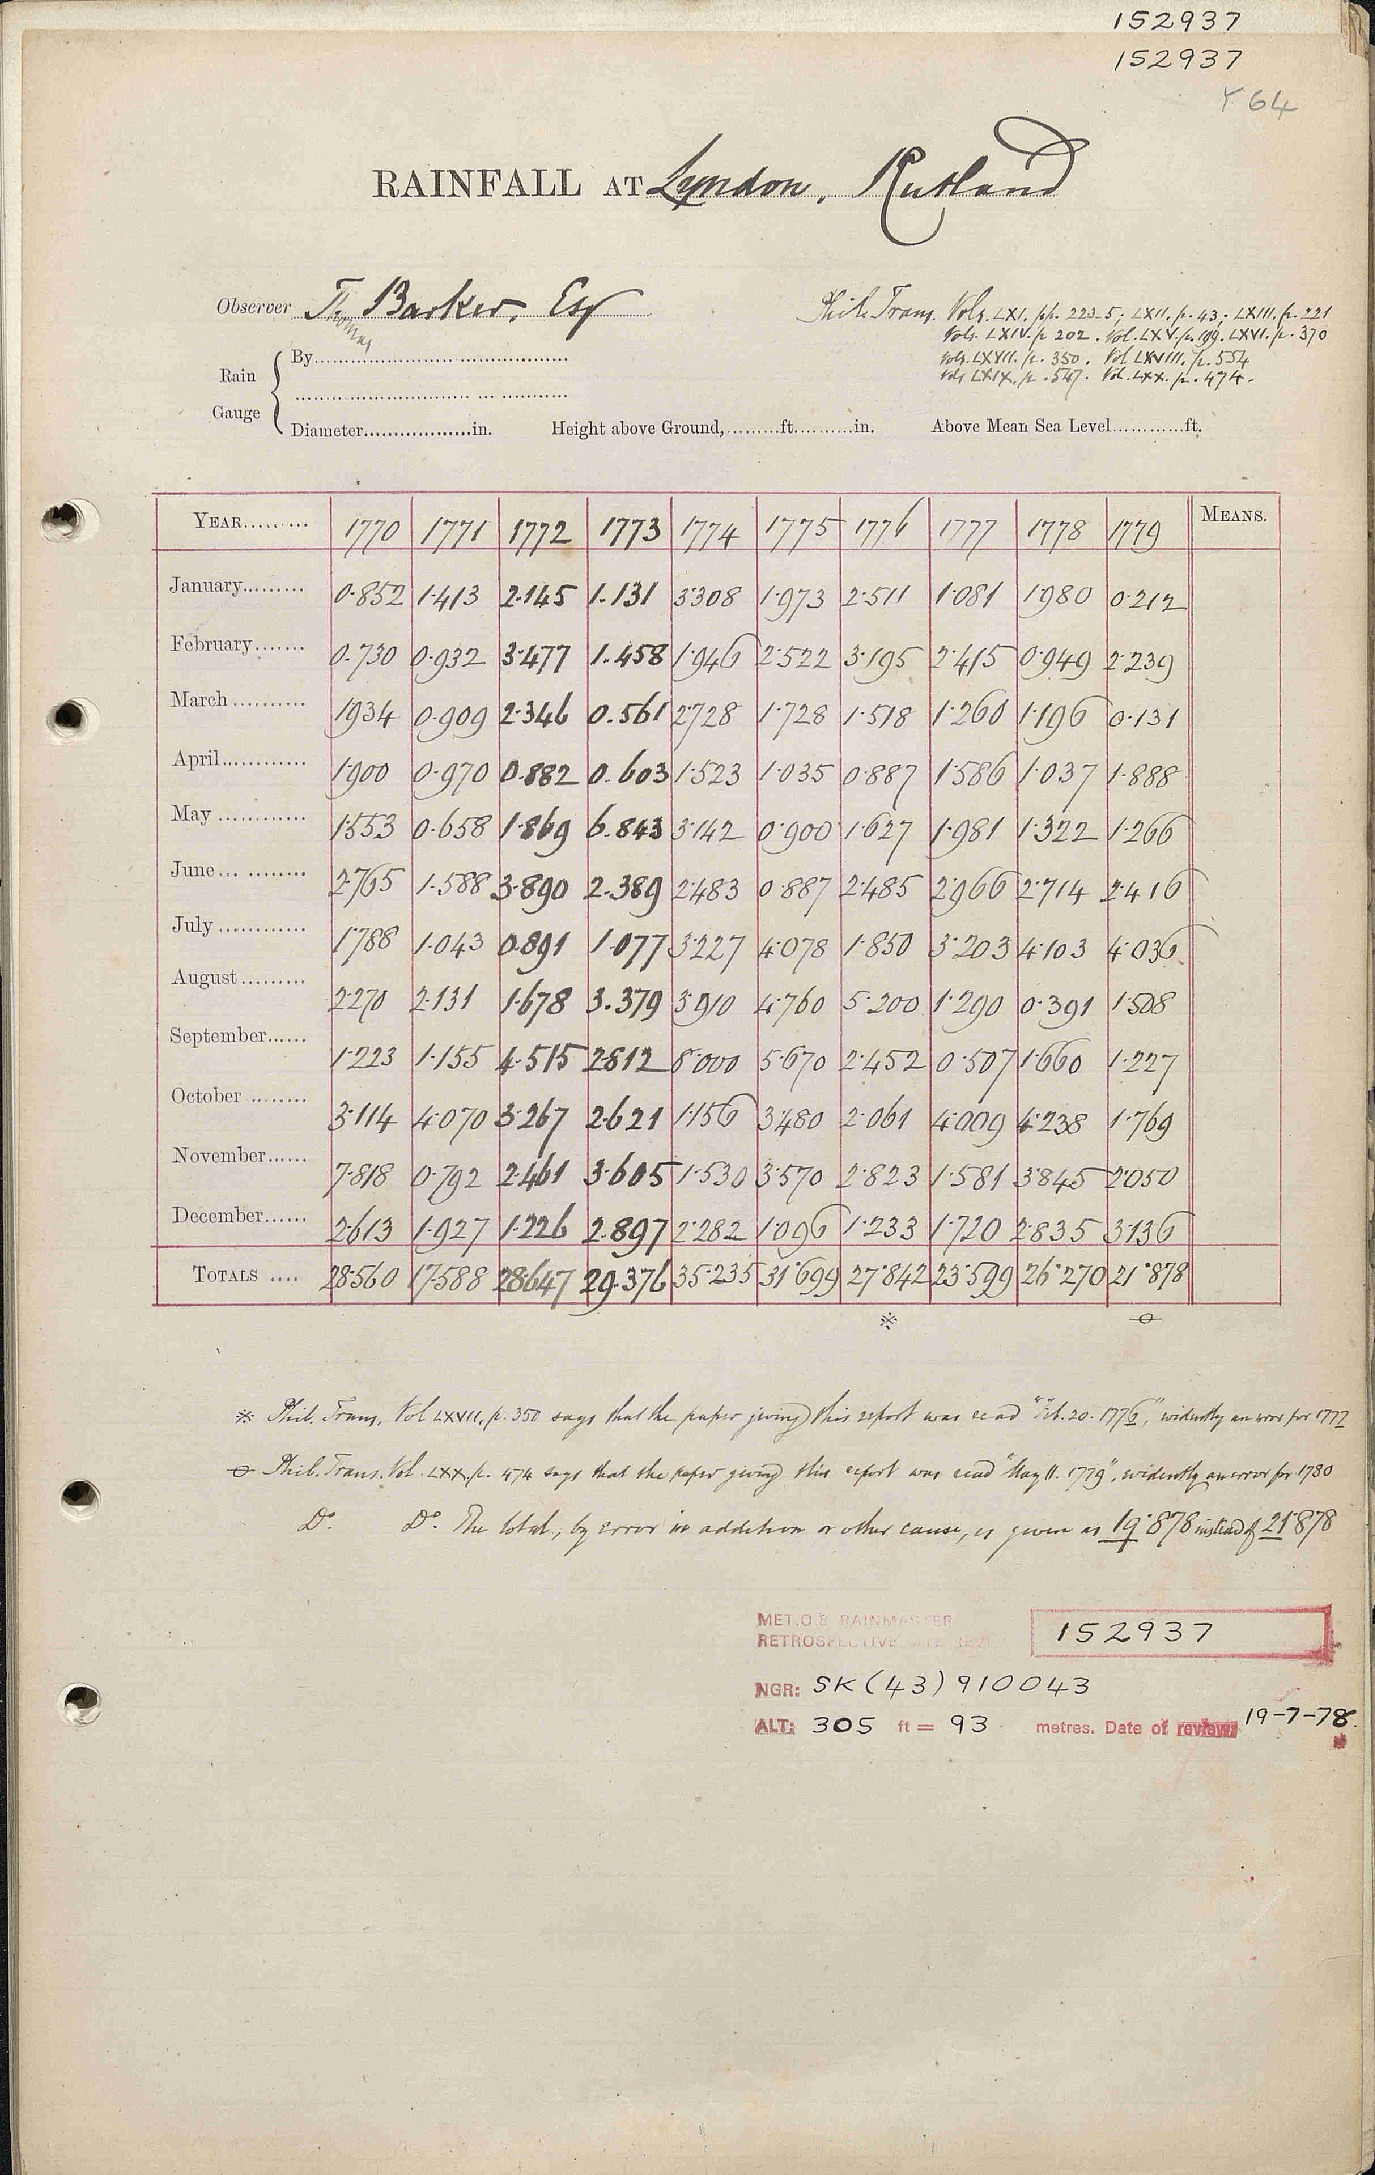 152937
152937
Y 64
RAINFALL AT Lyndon, Rutland
Observer Th Barker, Esq
Thomas
Phil. Trans. Vols. LXI. pp. 223-5; LXII. p. 43; LXIII. p. 221
Vols. LXIV. p 202. Vol. LXV. p. 199. LXVI. p. 370
Vols. LXVII. p. 350. Vol LXVIII. p. 554
Vols LXIX. p. 547. Vol. LXX. p. 474.
Rain Gauge
By
Diameter in. Height above Ground, ft. in. Above Mean Sea Level ft.
YEAR 1770 1771 1772 1773 1774 1775 1776 1777 1778 1779 MEANS.
January 0.852 1.413 2.145 1.131 3.308 1.973 2.511 1.081 1.980 0.212
February 0.730 0.932 3.477 1.458 1.946 2.522 3.195 2.415 0.949 2.239
March 1.934 0.909 2.346 0.561 2.728 1.728 1.518 1.260 1.196 0.131
April 1.900 0.970 0.882 0.603 1.523 1.035 0.887 1.586 1.037 1.888
May 1.553 0.658 1.869 6.843 3.142 0.900 1.627 1.981 1.322 1.266
June 2.765 1.588 3.890 2.389 2.483 0.887 2.485 2.966 2.714 2.416
July 1.788 1.043 0.891 1.077 3.227 4.078 1.850 3.203 4.103 4.036
August 2.270 2.131 1.678 3.379 3.910 4.760 5.200 1.290 0.391 1.508
September 1.223 1.155 4.515 2.812 8.000 5.670 2.452 0.507 1.660 1.227
October 3.114 4.070 3.267 2.621 1.156 3.480 2.061 4.009 4.238 1.769
November 7.818 0.792 2.461 3.605 1.530 3.570 2.823 1.581 3.845 2.050
December 2.613 1.927 1.226 2.897 2.282 1.096 1.233 1.720 2.835 3.136
TOTALS 28.560 17.588 28.647 29.376 35.235 31.699 27.842 23.599 26.270 21.878
※ ⦵
※ Phil. Trans. Vol LXVII. p. 350 says that the paper giving this report was read "Feb. 20. 1776", evidently an error for 1777
⦵ Phil. Trans. Vol. LXX. p. 474 says that the paper giving this report was read "May 11. 1779", evidently an error for 1780
Do. Do. The total, by error in addition or other cause, is given as 19.878 instead of 21.878
MET.O.8 RAINMASTER
RETROSPECTIVE SITE 152937
NGR: SK (43) 910043
ALT: 305 ft = 93 metres. Date of review 19-7-78.